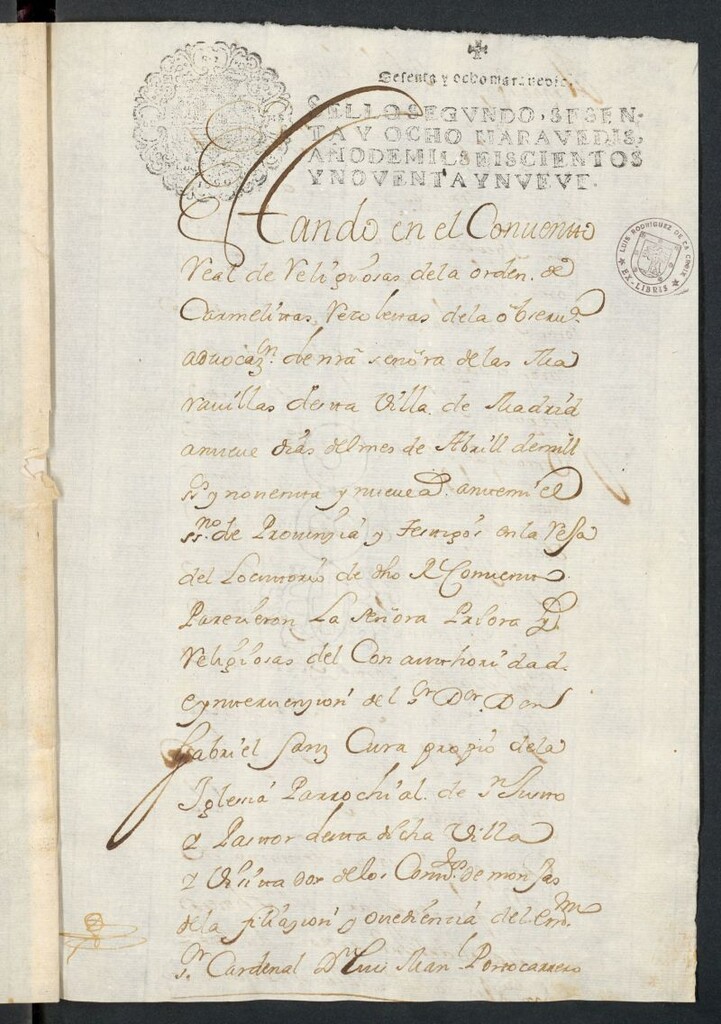 Sesenta y ocho maravedis.
SELLO SEGVNDO, SESEN-
TA Y OCHO MARAVEDIS,
AÑO DE MIL SEISCIENTOS
Y NOVENTA Y NVEVE.
LUIS RODRIGUEZ DE LA CROIX
EX-LIBRIS
Estando en el Conuento
Real de Religiosas dela orden de
Carmelitas, Recoletas dela obseru.ª
aduocaz.on de nra señora delas Ma
rauillas desta Villa de Madrid
a nueue dias del mes de Abrill de mill
ss y nouenta y nueue a.s ante mi el
ss.no de Prouinzia y testigos en la Rexa
del Locutorio de dho Rl Conuento
Parezieron La Señora Priora y
Religiosas del Con authoridad
e ynteruenzion del s.r D.or Don
Gabriel Sanz Cura propio dela
Iglesia Parrochial de s.n Justo
y Pastor desta dicha Villa
y Visitador delos Conu.tos de monjas
dela filiazion y ouediencia del em.mo
s.r Cardenal D.n Luis Man.l Portocarrero